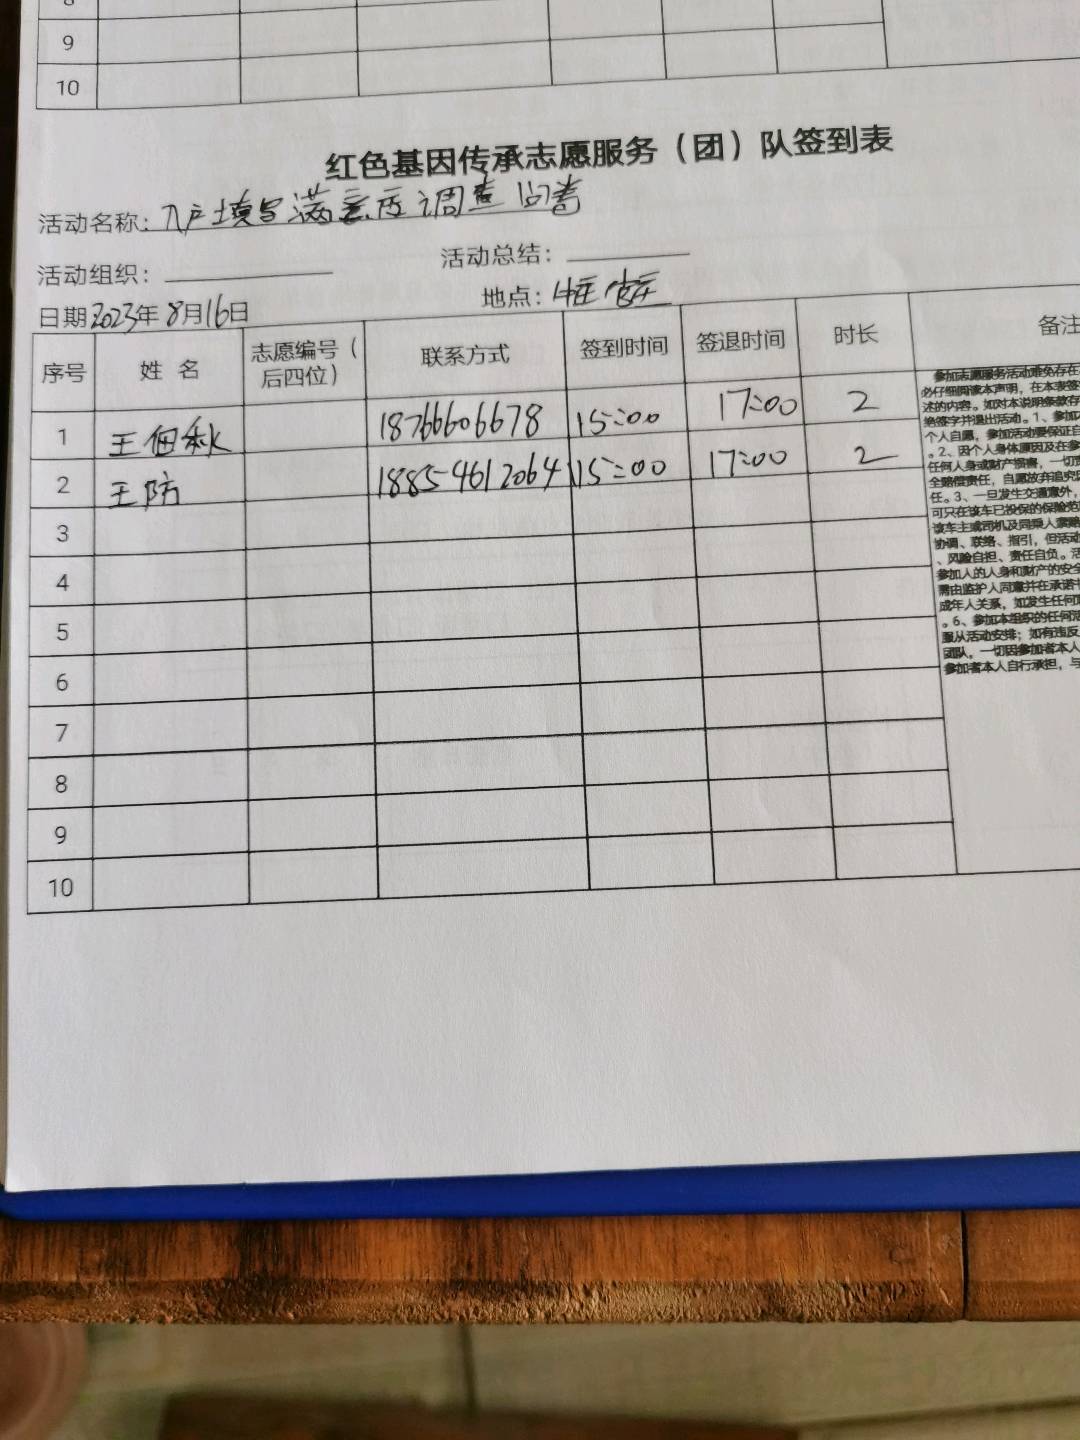 9
10
红色基因传承志愿服务（团）队签到表
活动名称：入户填写满意度调查问卷
活动组织： 活动总结：
日期2023年8月16日 地点：
序号 姓名 志愿编号（后四位） 联系方式 签到时间 签退时间 时长 备注
1 王佃秋 18766606678 15:00 17:00 2
2 王防 18854612064 15:00 17:00 2
3
4
5
6
7
8
9
10
参加志愿服务活动难免存在
必仔细阅读本声明，在本表签
述的内容。如对本说明条款存
绝签字并退出活动。1、参加
个人自愿，参加活动要保证自
。2、因个人身体原因及在参
任何人身或财产损害，一切责
全赔偿责任，自愿放弃追究
任。3、一旦发生交通意外，
可只在该车已投保的保险范
该车主或司机及同乘人索赔
协调、联络、指引，但活动
、风险自担、责任自负。活
参加人的人身和财产的安全
需由监护人同意并在承诺书
成年人关系，如发生任何
。6、参加本组织的任何活
服从活动安排；如有违反
团队，一切因参加者本人
参加者本人自行承担，与